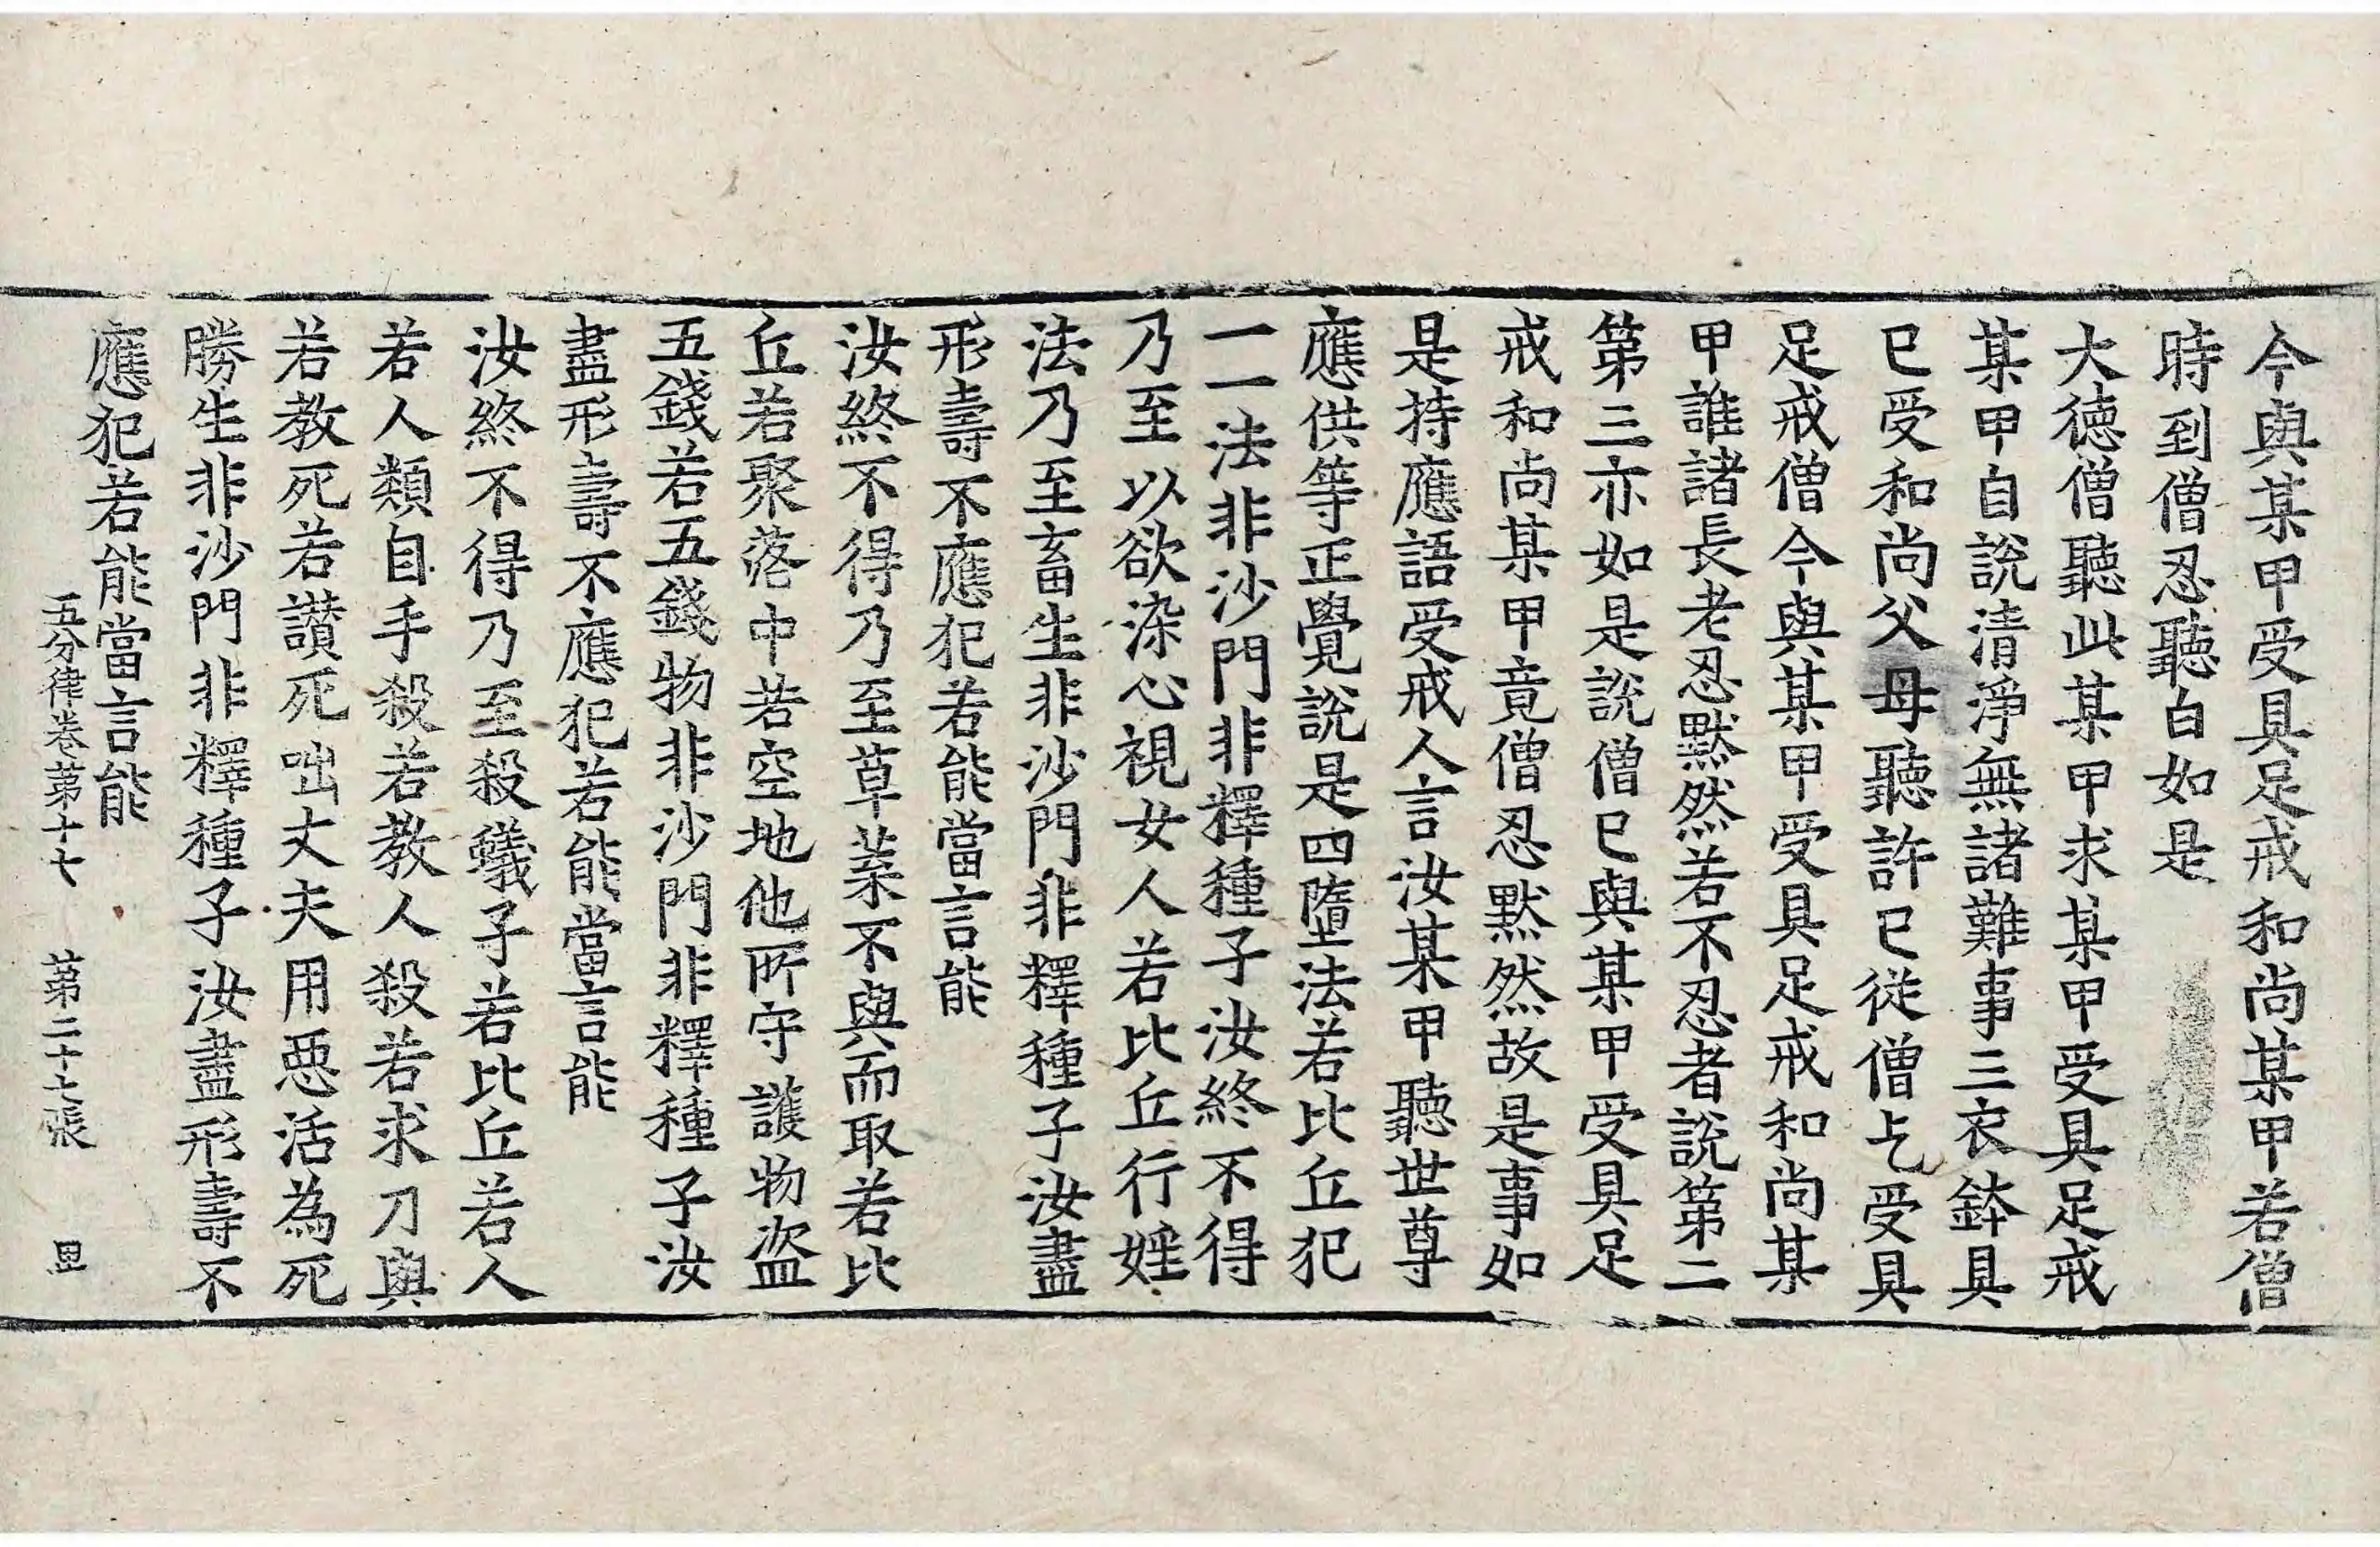 今與某甲受具足戒和尚某甲若僧
時到僧忍聽白如是
大德僧聽此某甲求某甲受具足戒
某甲自說清淨無諸難事三衣鉢具
已受和尚父母聽許已從僧乞受具
足戒僧今與某甲受具足戒和尚某
甲誰諸長老忍默然若不忍者說第二
第三亦如是說僧已與某甲受具足
戒和尚某甲竟僧忍默然故是事如
是持應語受戒人言汝某甲聽世尊
應供等正覺說是四墮法若比丘犯
一一法非沙門非釋種子汝終不得
乃至以欲染心視女人若比丘行婬
法乃至畜生非沙門非釋種子汝盡
形壽不應犯若能當言能
汝終不得乃至草菜不與而取若比
丘若聚落中若空地他所守護物盜
五錢若五錢物非沙門非釋種子汝
盡形壽不應犯若能當言能
汝終不得乃至殺蟻子若比丘若人
若人類自手殺若教人殺若求刀與
若教死若讃死咄丈夫用惡活為死
勝生非沙門非釋種子汝盡形壽不
應犯若能當言能
五分律卷第十七 第二十七張